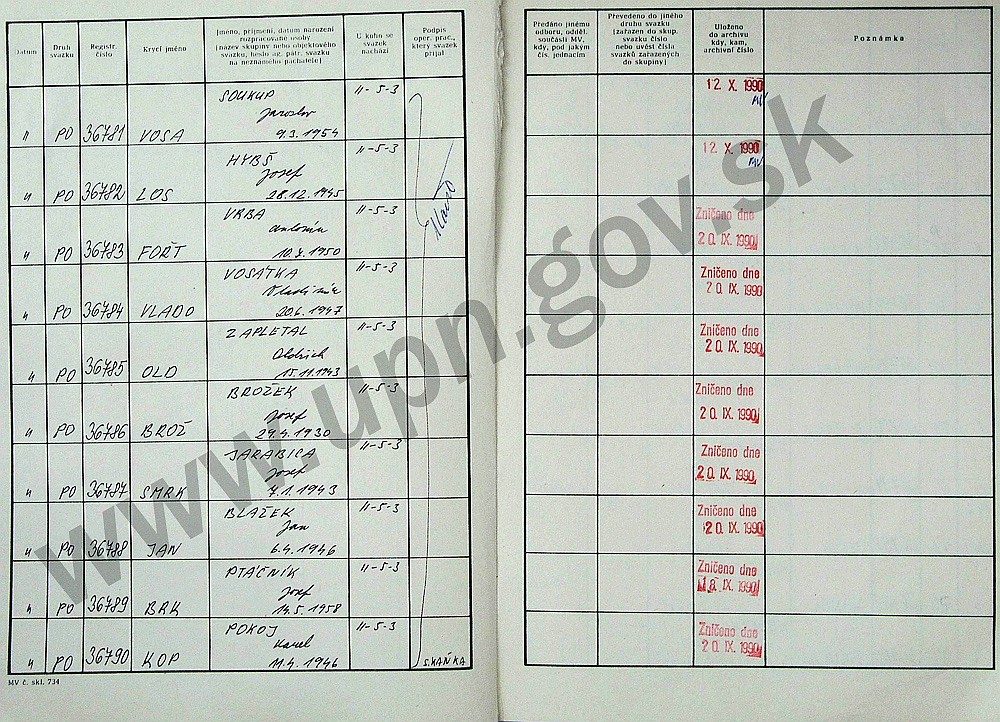 Datum
Druh svazku
Registr. číslo
Krycí jméno
Jméno, příjmení, datum narození
rozpracované osoby
(název skupiny nebo objektového
svazku, heslo ag. pátr. svazku
na neznámého pachatele)
U koho se
svazek
nachází
Podpis
oper. prac.,
který svazek
přijal
Předáno jinému
odboru, odděl.
součásti MV,
kdy, pod jakým
čís. jednacím
Převedeno do jiného
druhu svazku
(zařazen do skup.
svazku číslo
nebo uvést čísla
svazků zařazených
do skupiny)
Uloženo
do archivu
kdy, kam,
archivní číslo
Poznámka
SOUKUP II-5-3 12. X. 1990
Jaroslav MV
" PO 36781 VOSA 9.3.1954
HYBŠ II-5-3 12. X. 1990
Josef MV
" PO 36782 LOS 28.12.1945
VRBA II-5-3 Zničeno dne
Antonín 20. IX. 1990
" PO 36783 FOŘT 10.7.1950
VOSÁTKA II-5-3 Zničeno dne
Vladimír 20. IX. 1990
" PO 36784 VLADO 20.6.1947
ZAPLETAL II-5-3 Zničeno dne
Oldřich 20. IX. 1990
" PO 36785 OLD 15.11.1943
BROŽEK II-5-3 Zničeno dne
Josef 20. IX. 1990
" PO 36786 BROŽ 29.4.1930
JARABICA II-5-3 Zničeno dne
Josef 20. IX. 1990
" PO 36787 SMRK 7.1.1943
BLAŽEK II-5-3 Zničeno dne
Jan 20. IX. 1990
" PO 36788 JAN 6.4.1946
PTÁČNÍK II-5-3 Zničeno dne
Josef IX. 1990
" PO 36789 BRK 14.5.1958
POKOJ II-5-3 Zničeno dne
Karel 20. IX. 1990
" PO 36790 KOP 11.4.1946 S.KAŇKA
MV č. skl. 734
www.upn.gov.sk